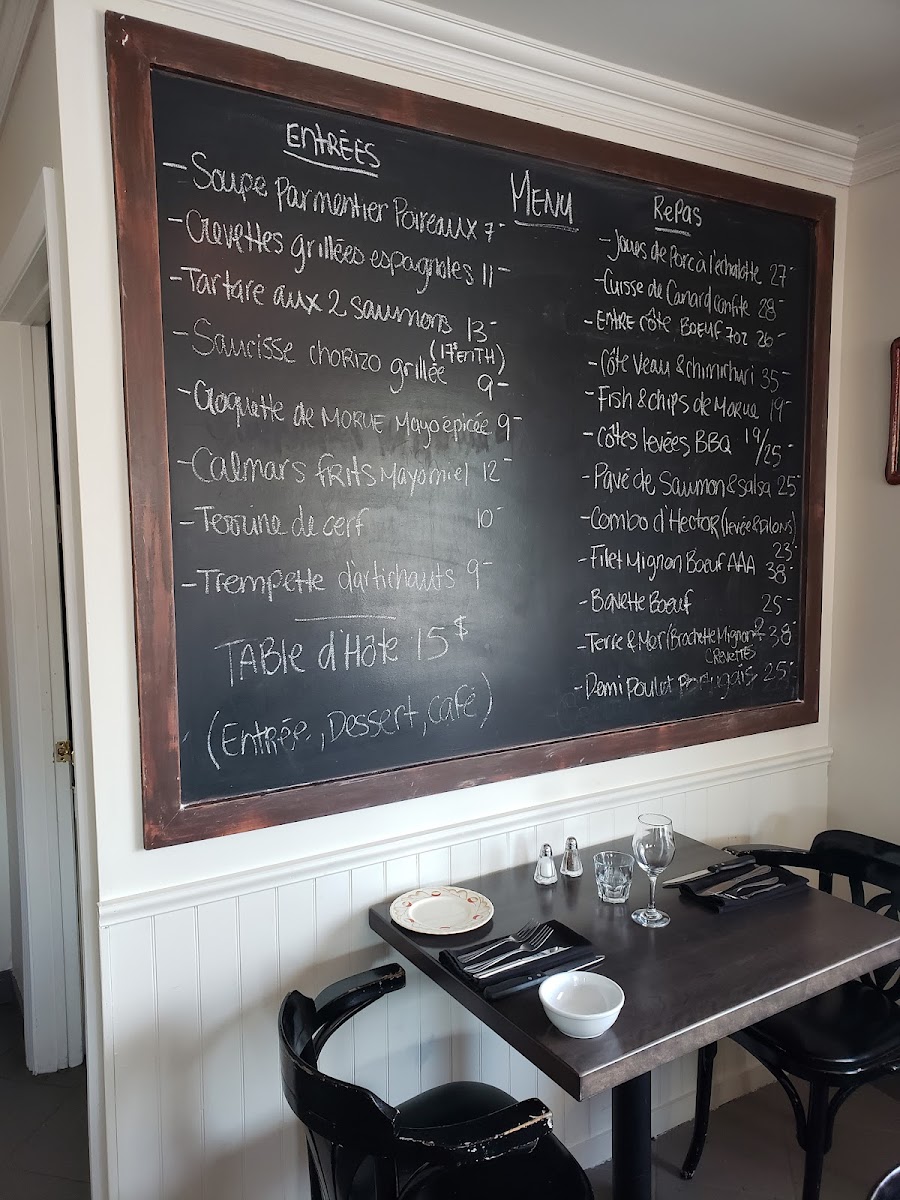 ENTRÉES
- Soupe Parmentier Poireaux 7-
- Crevettes grillées espagnoles 11-
- Tartare aux 2 saumons 13-
(17° en TH)
- Saucisse chorizo grillée 9-
- Croquette de MORUE Mayo épicée 9-
- Calmars frits Mayo miel 12-
- Terrine de cerf 10-
- Trempette d'artichauts 9-
TABle d'Hôte 15$
(Entrée, Dessert, café)
MENU
RePas
- Joues de Porc à l'échalotte 27-
- Cuisse de Canard confite 28-
- ENTRE côte BOEUF 7oz 26-
- Côte Veau & chimichuri 35-
- Fish & chips de Morue 19-
- Côtes levées BBQ 19/25-
- Pavé de Saumon & salsa 25-
- Combo d'Hector (levée & pilons)
23-
- Filet Mignon Boeuf AAA 38-
- Bavette Boeuf 25-
- Terre & Mer (Brochette Mignon & 38-
CREVETTES
- Demi Poulet Portugais 25-